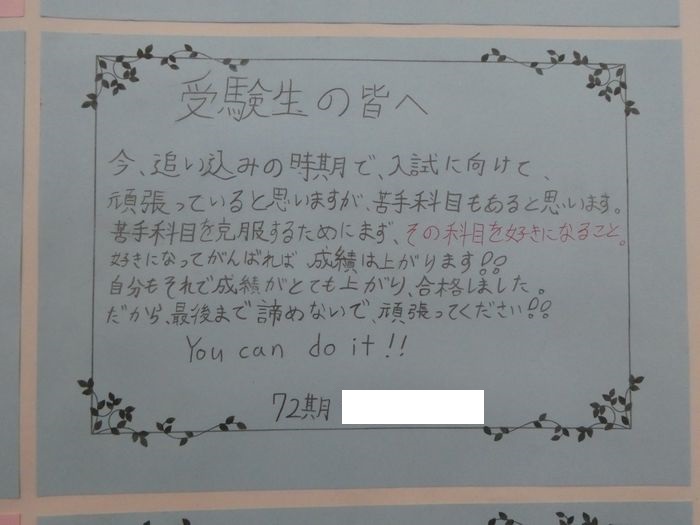 受験生の皆へ
今、追い込みの時期で、入試に向けて、
頑張っていると思いますが、苦手科目もあると思います。
苦手科目を克服するためにまず、その科目を好きになること。
好きになってがんばれば、成績は上がります!!
自分もそれで成績がとても上がり、合格しました。
だから、最後まで諦めないで、頑張ってください!!
You can do it!!
72期